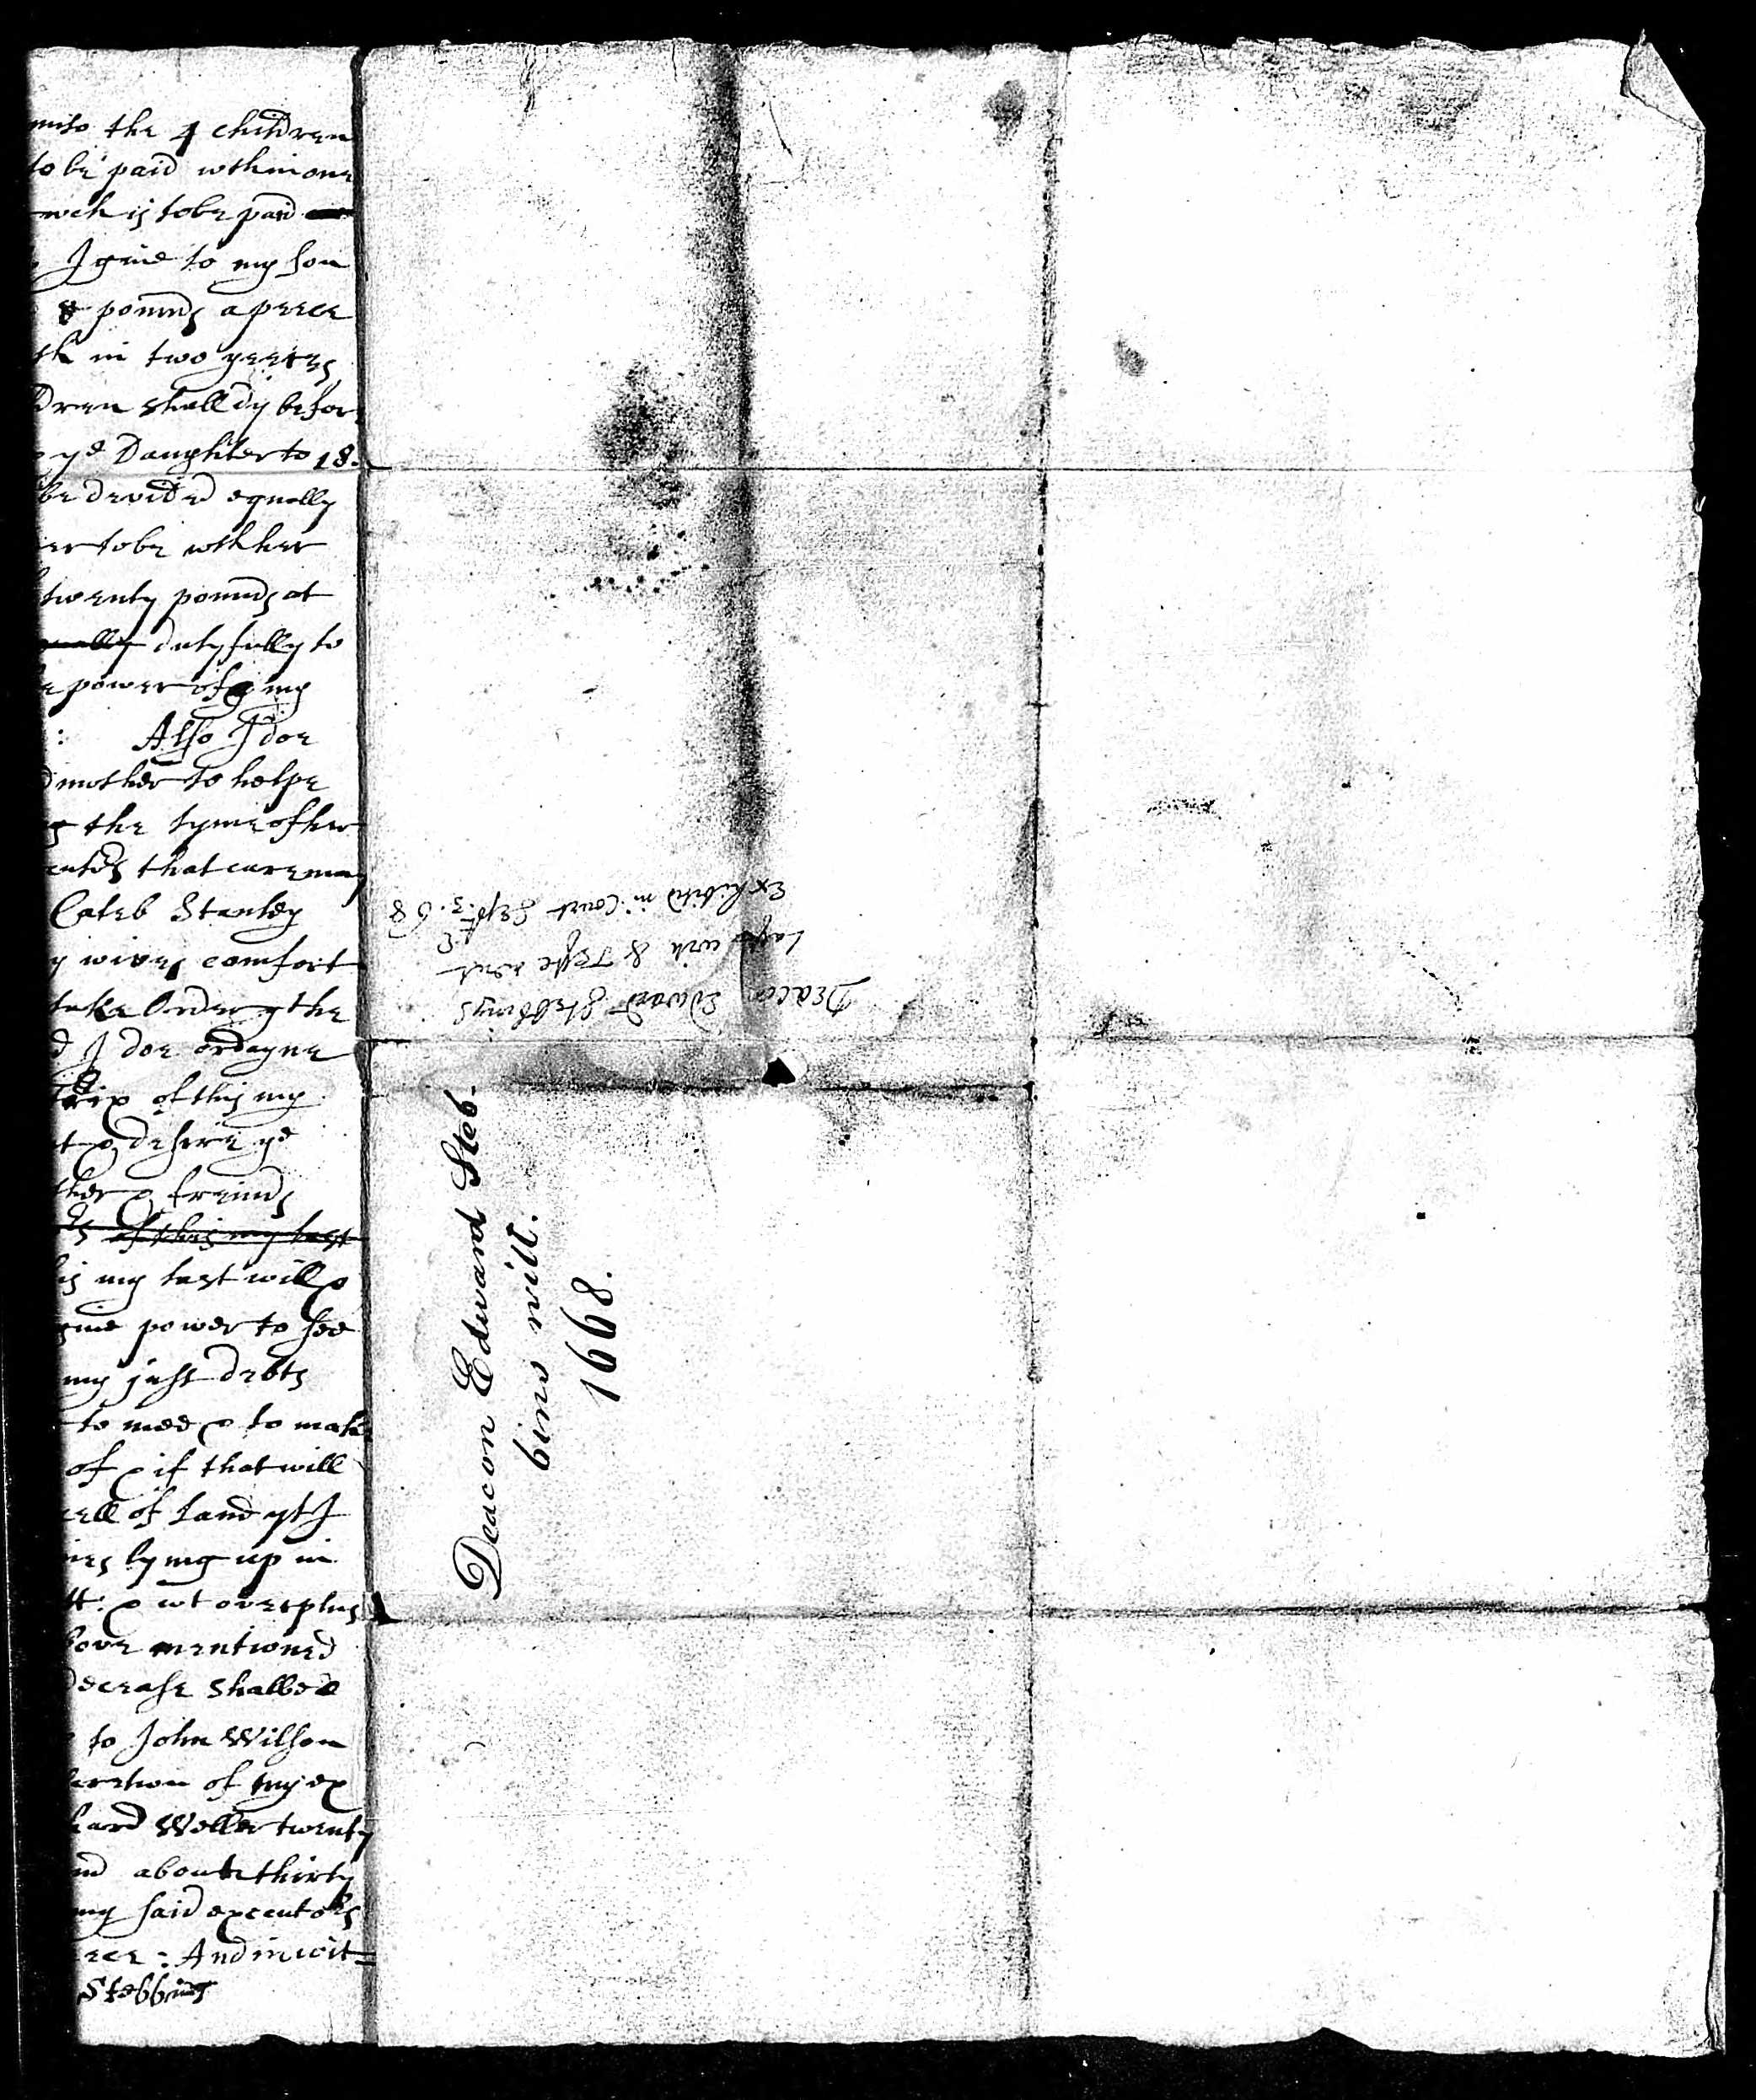 unto the 4 children
to be paid wthin one
wch is to be paid
I give to my son
pounds a peece
th in two yeeres
dren shall dy befor
ye Daughter to 18.
be devided equally
er to be wth her
twenty pounds at
dutyfully to
e power of my
: Also I doe
d mother to helpe
g the tyme of her
that care may
Caleb Stanley
y wives comfort
take Order the
d I doe ordayne
trix of this my
t & desire ye
ther & freinds
of this my last
is my last will &
give power to see
my just debts
to mee & to make
of & if that will
cell of land yt I
ies lying up in
tt: & wt overplus
bove mentioned
decease shalbee
to John Wilson
eration of my ex
hard Weller twenty
nd about thirty
my said executors
eece : And in wit=
Stebbing
Deacon Edward Stebbings
Last will & Testament
Exhibitd in Court Sept. 3. 68
Deacon Edward Steb.
bins will.
1668.